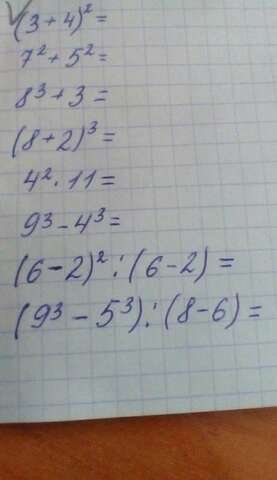 (3+4)²=
7²+5²=
8³+3=
(8+2)³=
4²·11=
9³-4³=
(6-2)²:(6-2)=
(9³-5³):(8-6)=